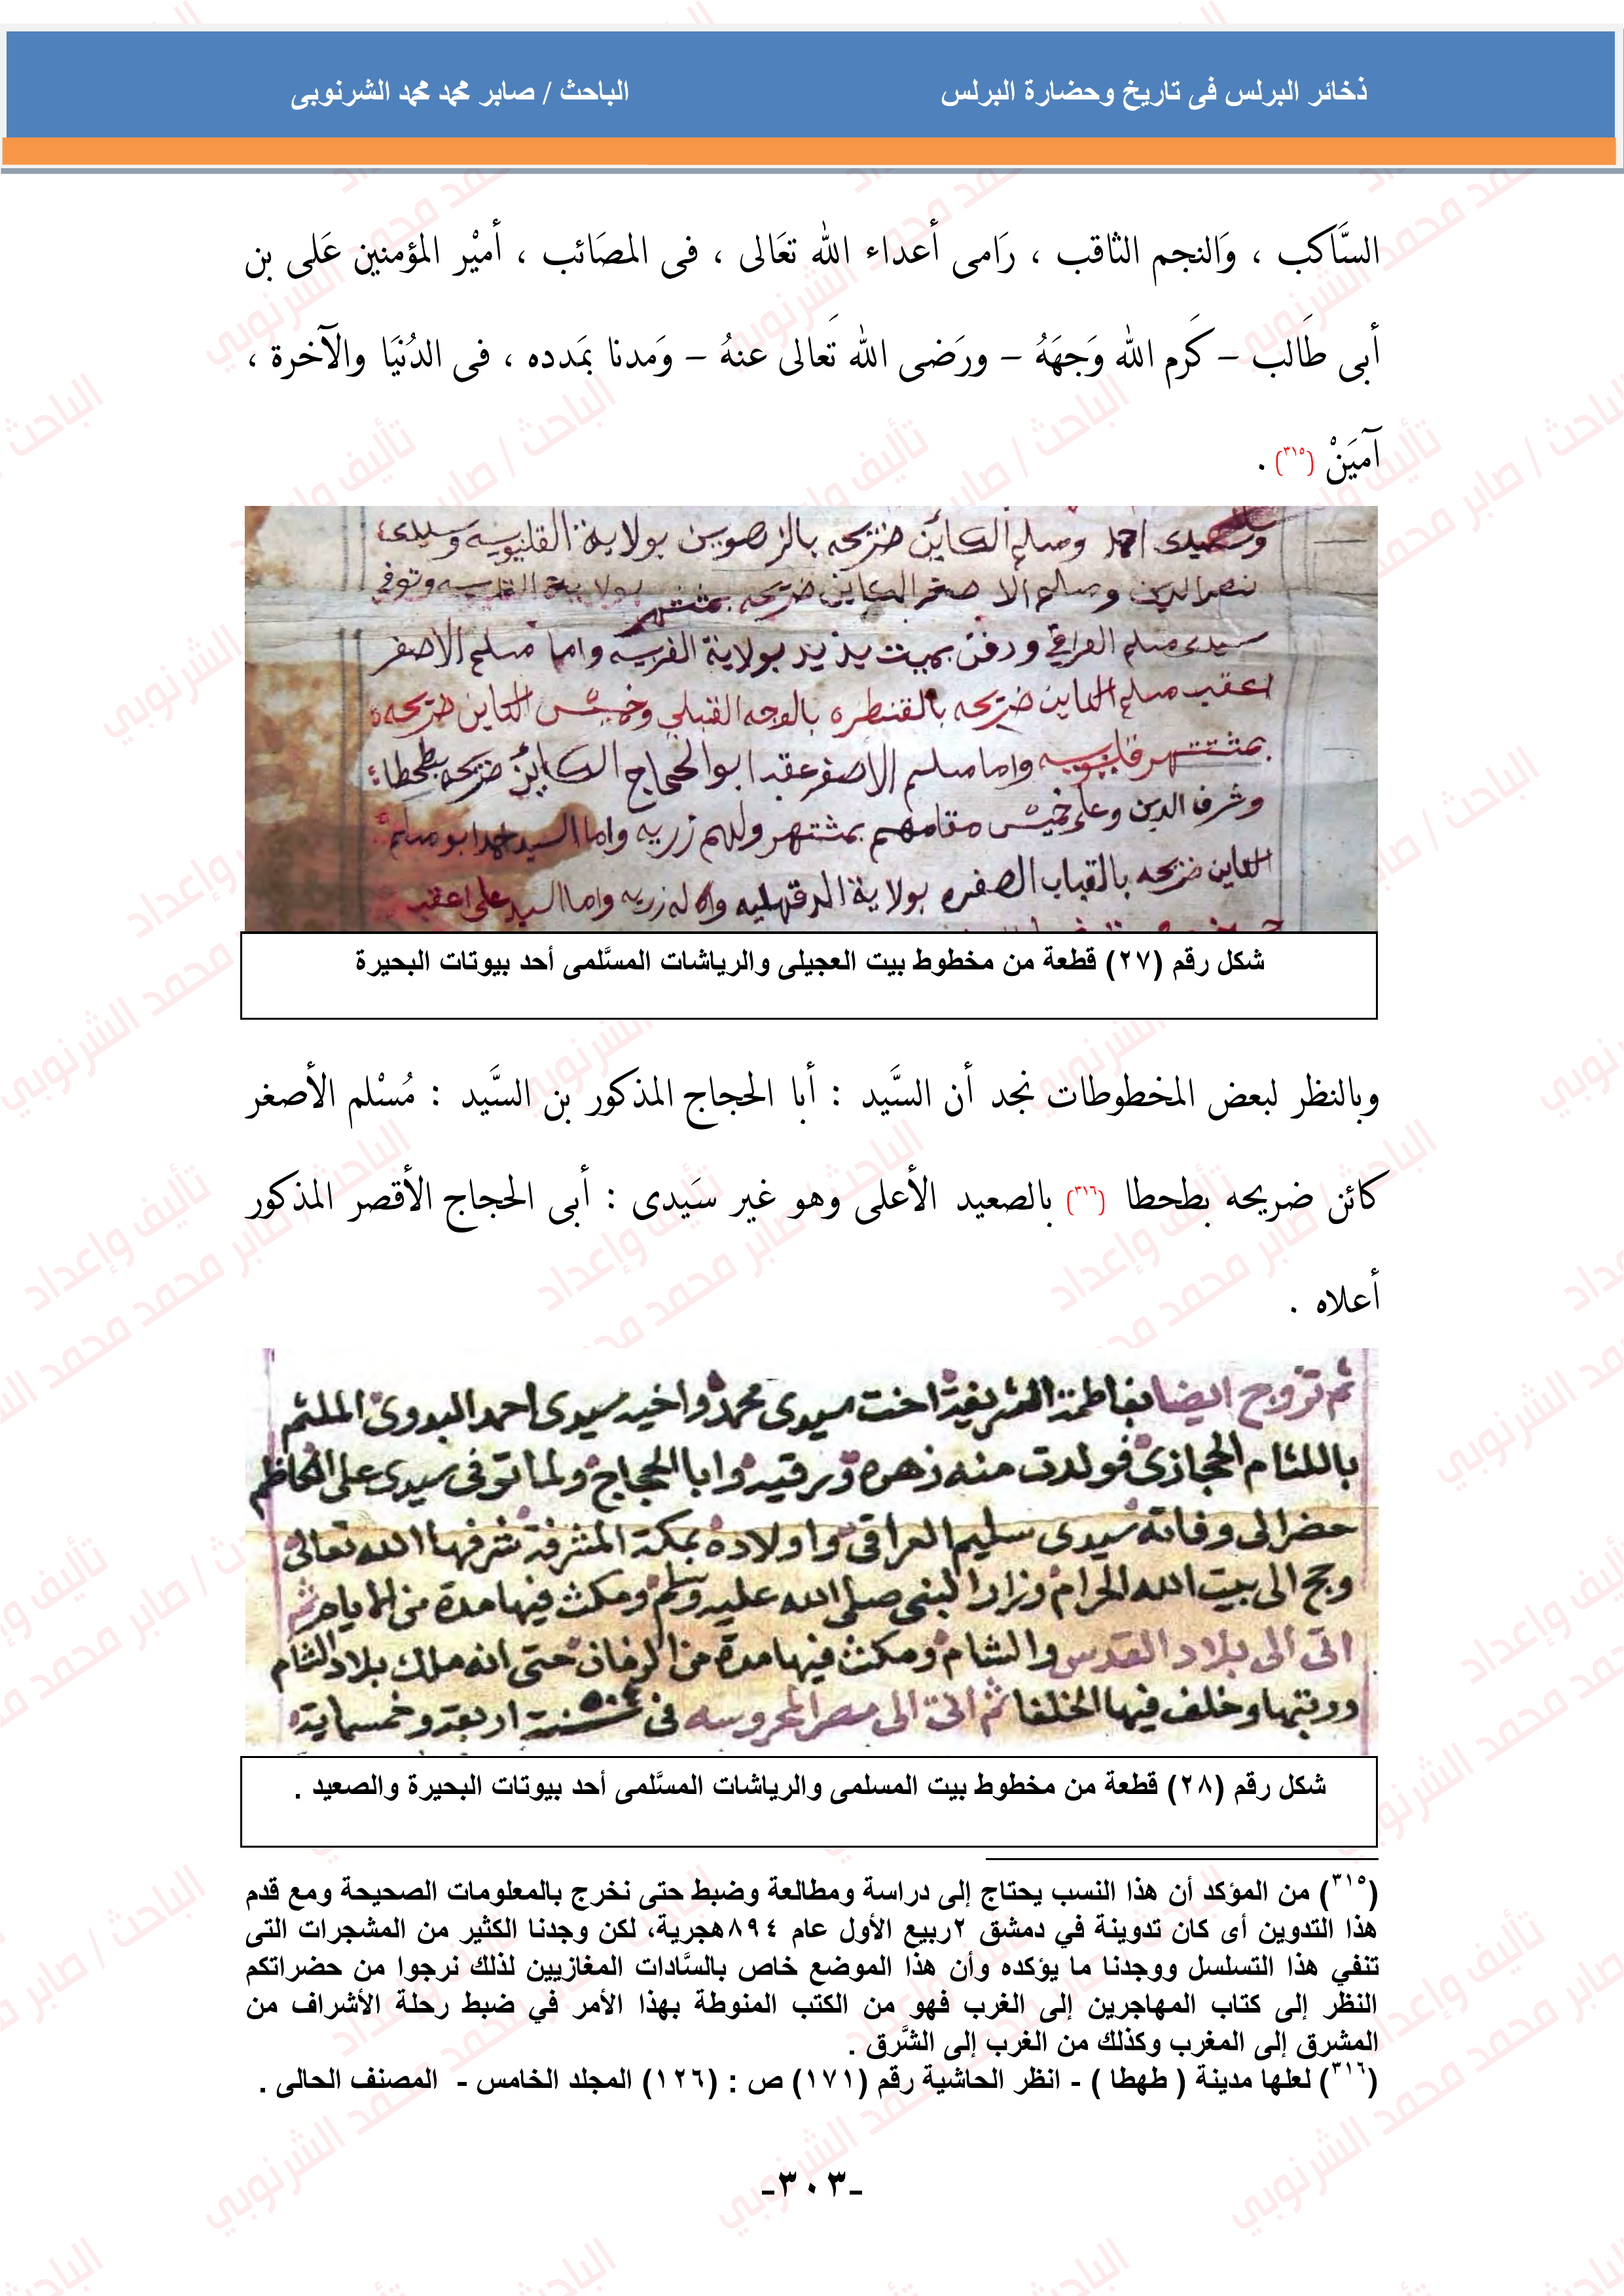 ذخائر البرلس فى تاريخ وحضارة البرلس
الباحث / صابر محمد محمد الشرنوبى
السَّاكب ، وَالنجم الثاقب ، رَامى أعداء الله تعَالى ، فى المصَائب ، أميْر المؤمنين عَلى بن
أبى طَالب – كَرم الله وَجهَهُ – ورَضى الله تَعالى عنهُ – وَمدنا بمَدده ، فى الدُنيَا والآخرة ،
آميَنْ (٣١٥) .
وسيدى احمد ومسلم الكاين ضريحه بالزهويين بولاية القليوبيه وسيدى
نصر الدين ومسلم الاصغر الكاين ضريحه بمشتهر بولاية القليوبيه وتوفي
سيدى مسلم العراقي ودفن بميت يزيد بولاية الغربيه واما مسلم الاصغر
اعقب مسلم الكاين ضريحه بالقنطره بالوجه القبلي وخميس الكاين ضريحه
بمشتهر قليوبيه واما مسلم الاصغر عقب ابو الحجاج الكاين ضريحه بطحطا
وشرف الدين وعلى خميس مقامهم بمشتهر ولهم زريه واما السيد احمد ابو مسلم
الكاين ضريحه بالقباب الصغره بولاية الدقهليه وله زريه واما السيد على اعقب
شكل رقم (٢٧) قطعة من مخطوط بيت العجيلى والرياشات المسَّلمى أحد بيوتات البحيرة
وبالنظر لبعض المخطوطات نجد أن السَّيد : أبا الحجاج المذكور بن السَّيد : مُسْلم الأصغر
كائن ضريحه بطحطا (٣١٦) بالصعيد الأعلى وهو غير سَيدى : أبى الحجاج الأقصر المذكور
أعلاه .
ثم تزوج ايضا بفاطمة الشريفة اخت سيدى محمد واخيه سيدى احمد البدوى الملثم
باللثام الحجازى فولدت منه زهره ورقيه وابا الحجاج ولما توفى سيدى على الكاظم
حضر الى وفاته سيدى سليم العراقى واولاده بمكة المشرفة شرفها الله تعالى
وحج الى بيت الله الحرام وزار النبى صلى الله عليه وسلم ومكث فيها مدة من الايام ثم
اتى الى بلاد القدس والشام ومكث فيها مدة من الزمان حتى انه ملك بلاد الشام
ورتبها وخلف فيها الخلفا ثم اتى الى مصر المحروسه فى سنة ٥٠٤ اربعة وخمسماية
شكل رقم (٢٨) قطعة من مخطوط بيت المسلمى والرياشات المسَّلمى أحد بيوتات البحيرة والصعيد .
(٣١٥) من المؤكد أن هذا النسب يحتاج إلى دراسة ومطالعة وضبط حتى نخرج بالمعلومات الصحيحة ومع قدم
هذا التدوين أى كان تدوينة في دمشق ٢ربيع الأول عام ٨٩٤هجرية، لكن وجدنا الكثير من المشجرات التى
تنفي هذا التسلسل ووجدنا ما يؤكده وأن هذا الموضع خاص بالسَّادات المغازيين لذلك نرجوا من حضراتكم
النظر إلى كتاب المهاجرين إلى الغرب فهو من الكتب المنوطة بهذا الأمر في ضبط رحلة الأشراف من
المشرق إلى المغرب وكذلك من الغرب إلى الشَّرق .
(٣١٦) لعلها مدينة ( طهطا ) - انظر الحاشية رقم (١٧١) ص : (١٢٦) المجلد الخامس - المصنف الحالى .
-٣٠٣-